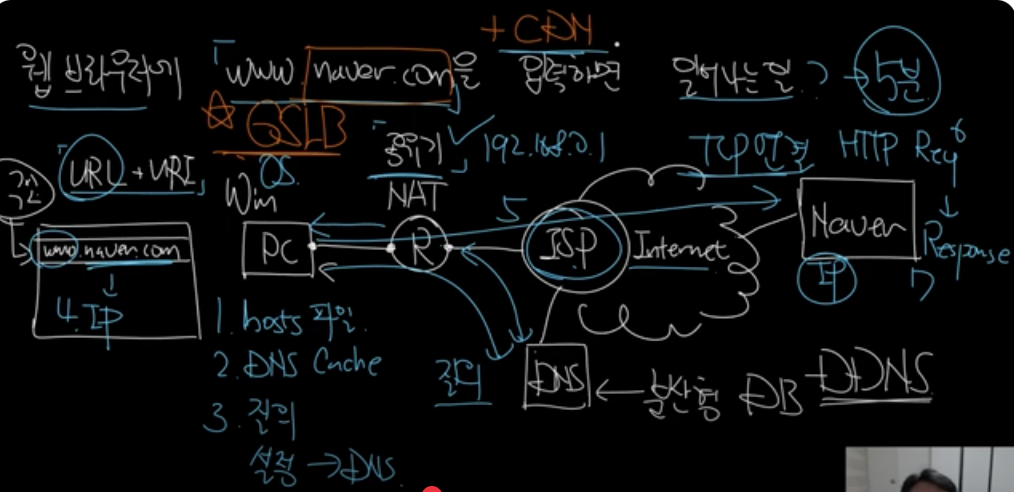 + CDN
웹 브라우저에 「www naver.com」을 입력하면 일어나는 일? → 5분
☆ GSLB
「공유기」 ✓ 192.168.0.1
TCP 연결 HTTP Req 6
「URL + URI」
OS
Win
NAT
www.naver.com
↓
4. IP
PC
R
5
ISP
Internet
Naver
IP
↓
Response
7
1. hosts 파일.
2. DNS Cache
3. 질의
설정 → DNS
질의
DNS ← 분산형 DB
DDNS